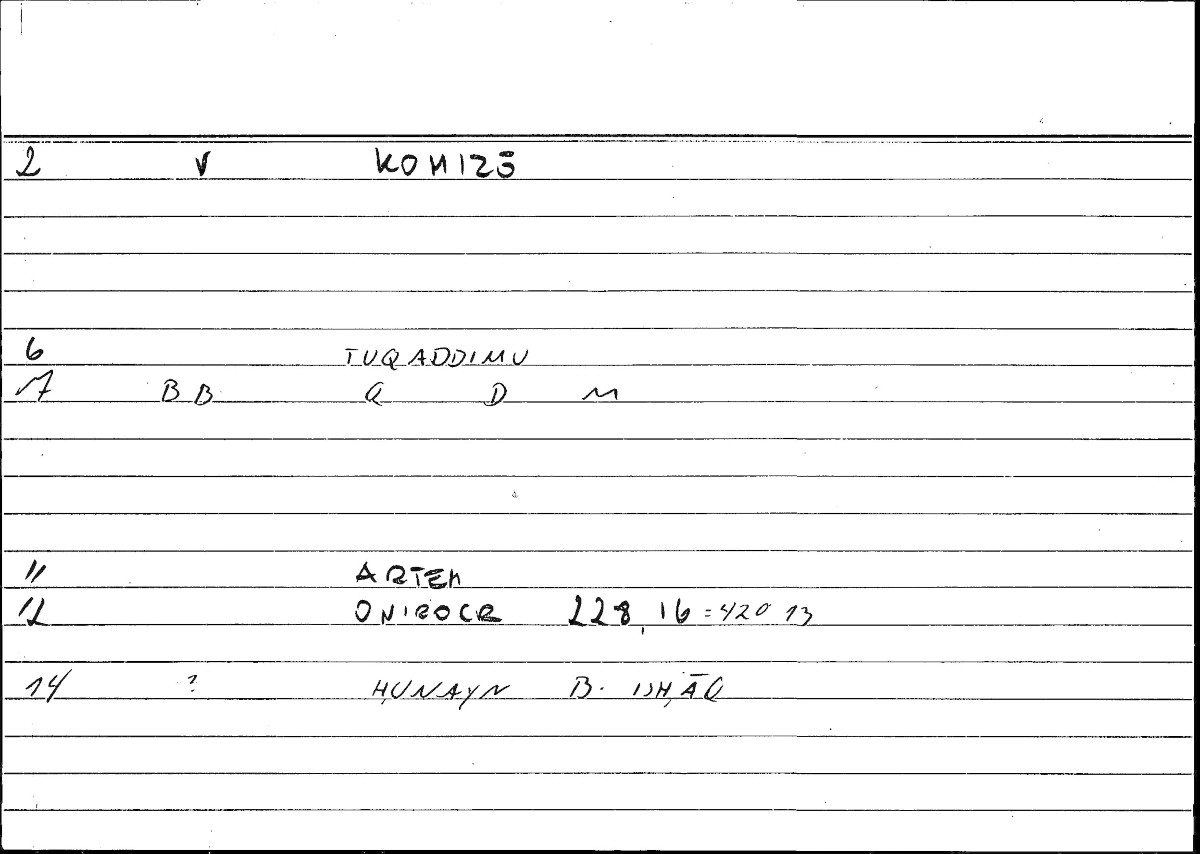 2 V KOMIZŌ
6 TUQADDIMU
7 BB Q D M
11 ARTEM
12 ONIROCR 228,16 = 420 13
14 ? ḤUNAYN B. ISḤĀQ